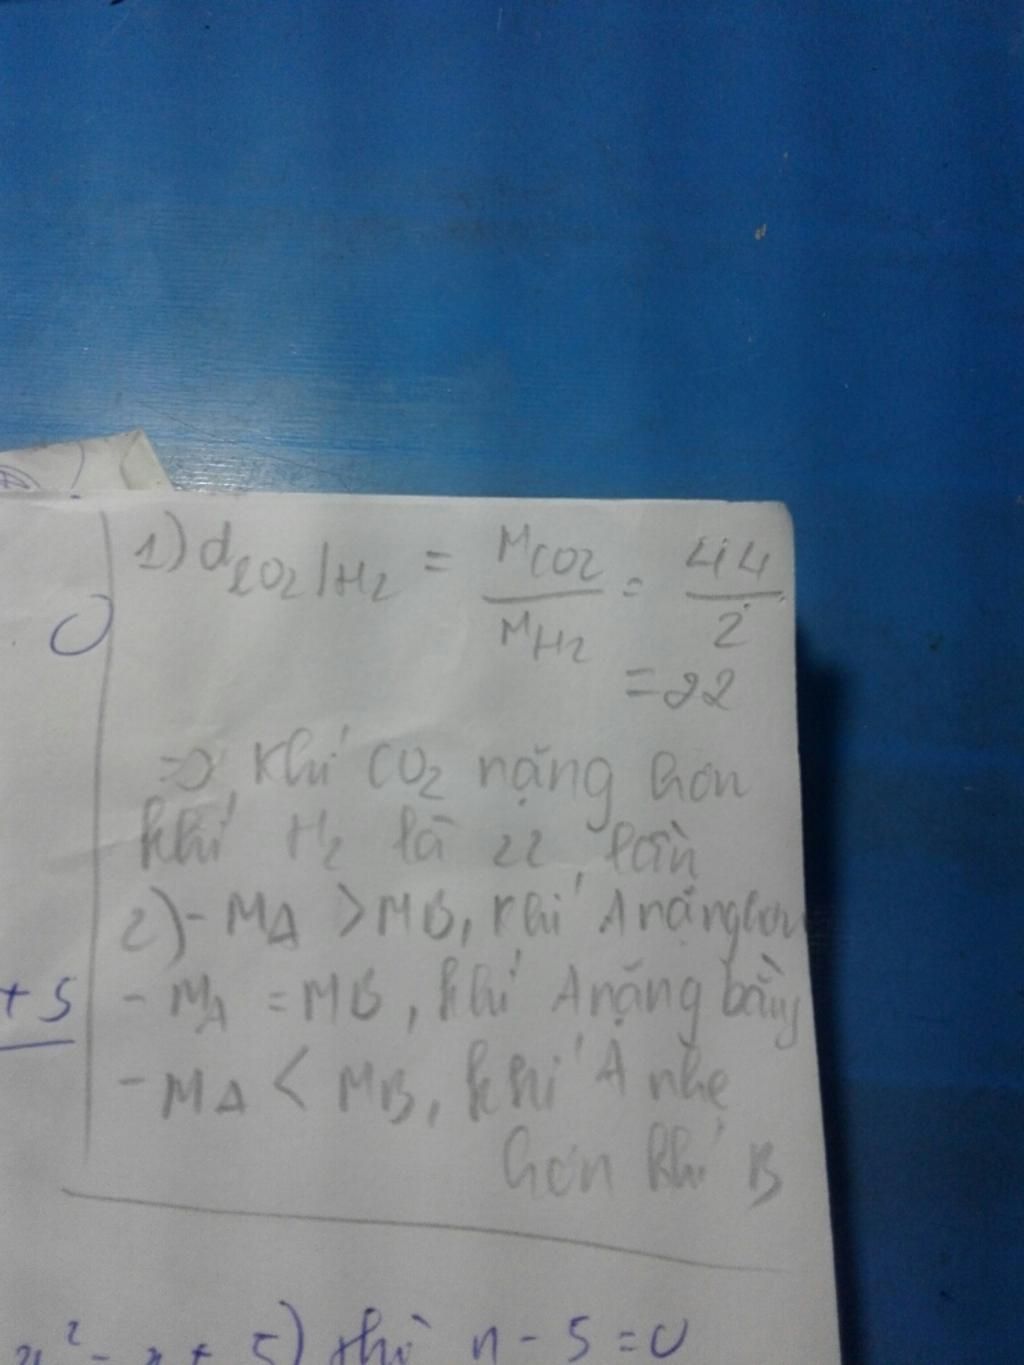 1) dCO2/H2 = MCO2/MH2 = 44/2
= 22
=> Khí CO2 nặng hơn
khí H2 là 22 lần
2) - MA > MB, khí A nặng hơn
- MA = MB, khí A nặng bằng
- MA < MB, khí A nhẹ
hơn khí B
+ 5
- n + 5) thì n - 5 = 0